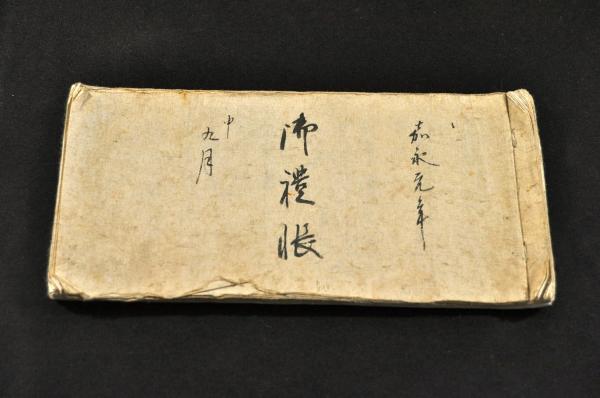 嘉永元年
御禮帳
申
九月